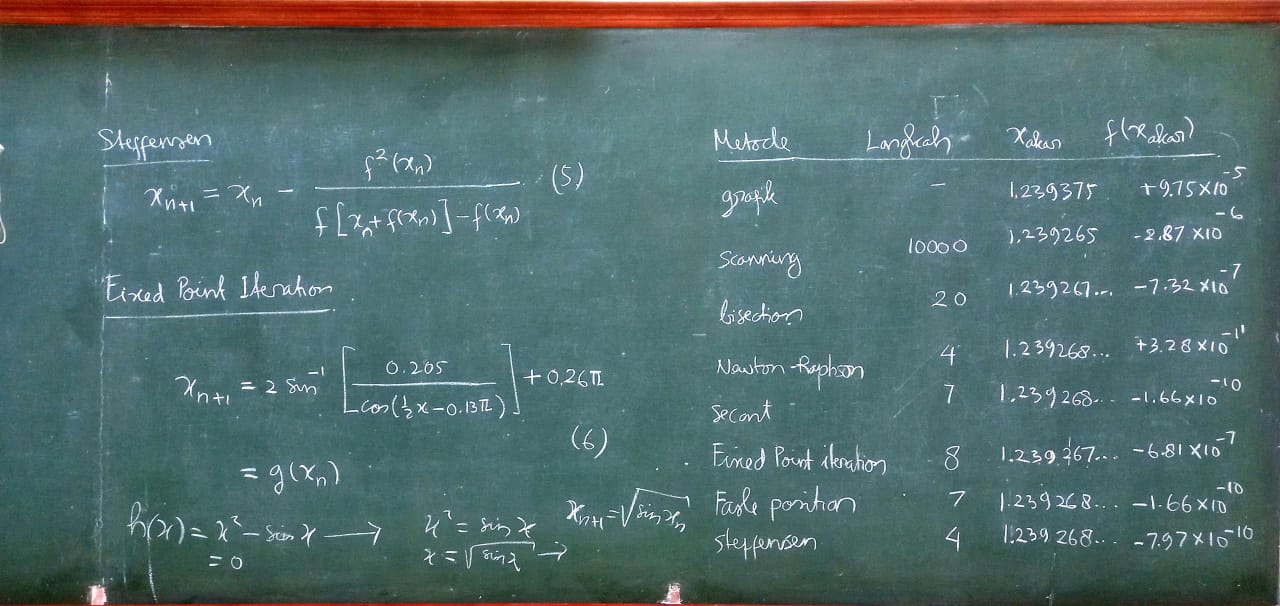 Steffensen
xₙ₊₁ = xₙ − f²(xₙ) / (f[xₙ + f(xₙ)] − f(xₙ)) (5)
Fixed Point Iteration
xₙ₊₁ = 2 sin⁻¹ [0.205 / cos(½x − 0.13π)] + 0,26π
(6)
= g(xₙ)
h(x) = x² − sin x → x² = sin x
= 0 x = √sin x → xₙ₊₁ = √sin xₙ
Metode Langkah xakar f(xakar)
grafik – 1.239375 +9.75×10⁻⁵
Scanning 10000 1,239265 -2,87×10⁻⁶
bisection 20 1.239267... −7.32×10⁻⁷
Newton-Raphson 4 1.239268... +3.28×10⁻¹¹
Secant 7 1.239268... −1.66×10⁻¹⁰
Fixed Point iteration 8 1.239267... −6.81×10⁻⁷
Fasle position 7 1.239268... −1.66×10⁻¹⁰
Steffensen 4 1.239268... −7.97×10⁻¹⁰